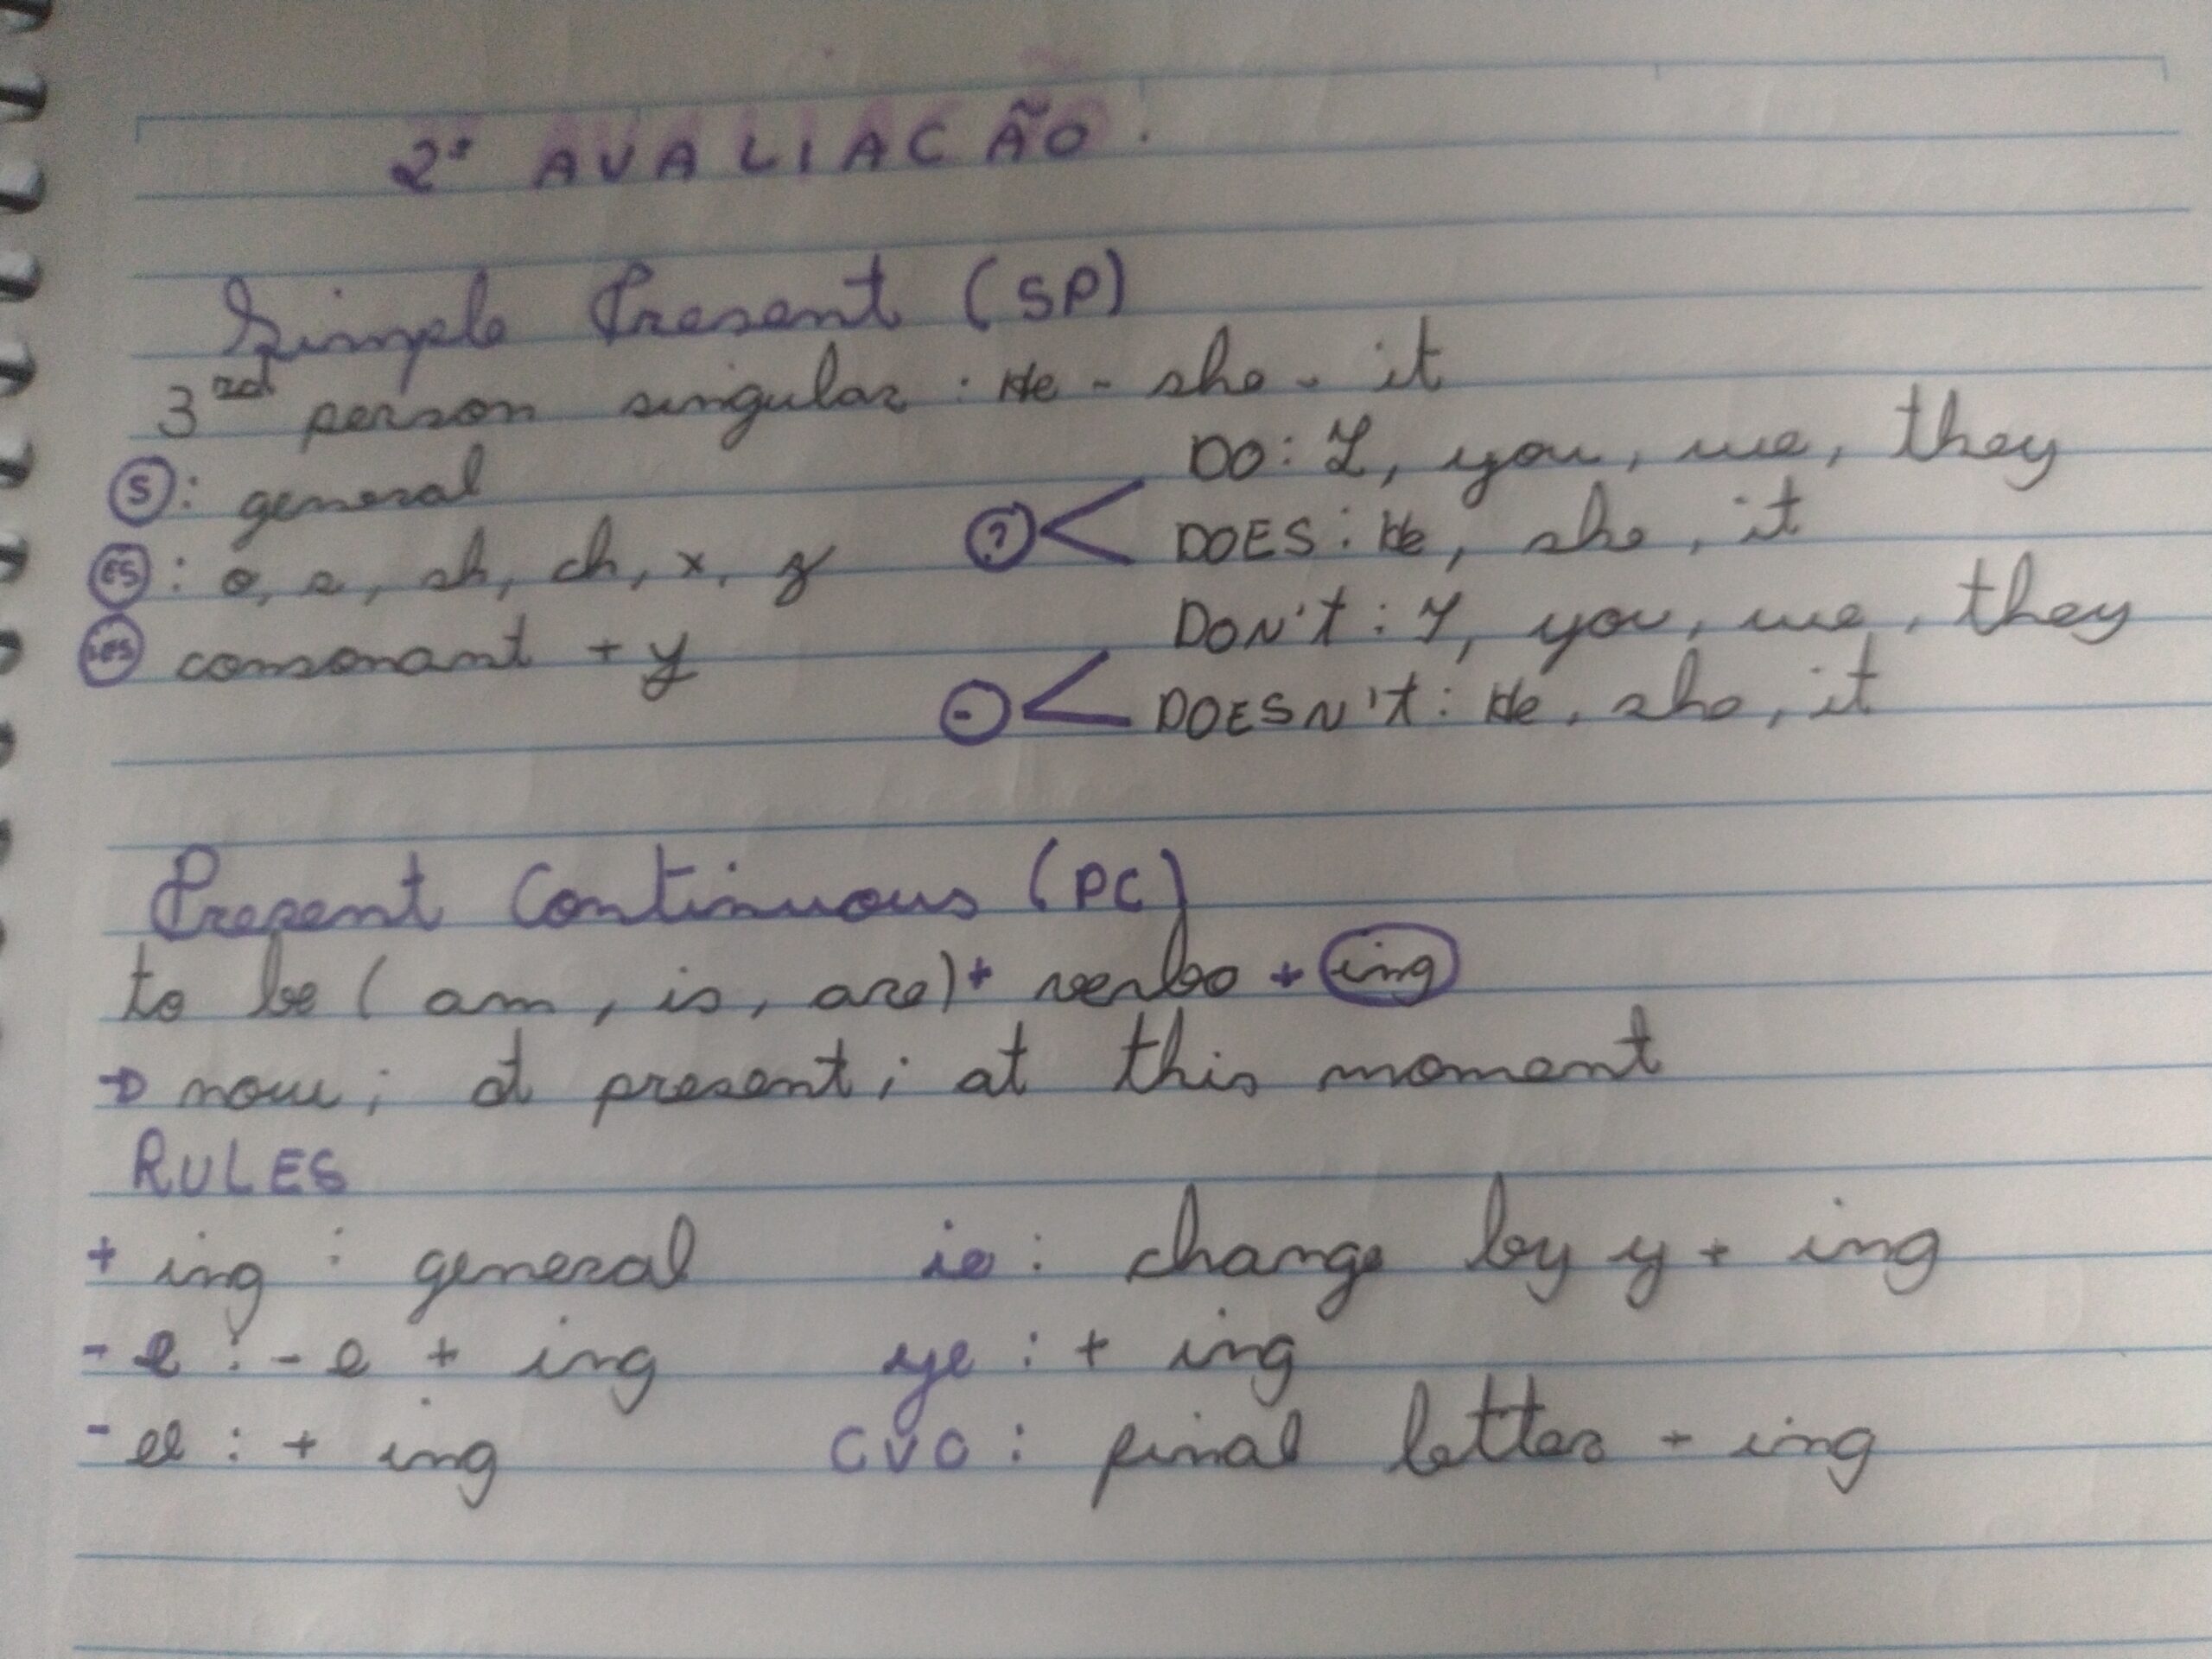 2ª AVALIACÃO.
Simple Present (SP)
3rd person singular: He - she - it
(S): general
(ES): o, s, sh, ch, x, z
(-ies) consonant + y
(?) < DO: I, you, we, they
DOES: He, she, it
(-) < DON'T: I, you, we, they
DOESN'T: He, she, it
Present Continuous (PC)
to be (am, is, are) + verbo + ing
→ now; at present; at this moment
RULES
+ ing : general
- e : - e + ing
- ee : + ing
ie : change by y + ing
ye : + ing
CVC : final letter + ing